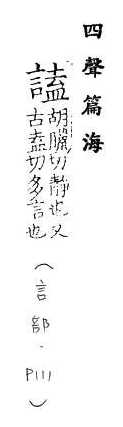 四聲篇海
胡臘切靜也又
古盍切多言也
（言部．P111）